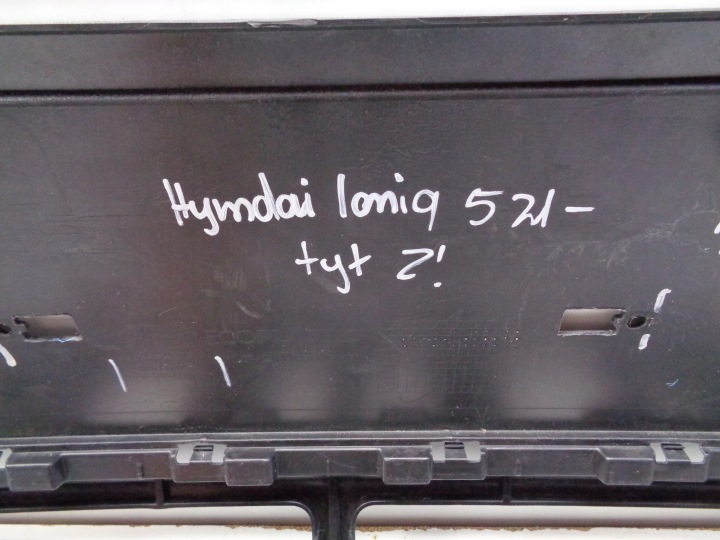 Hyundai Ioniq 5 21-
tyt 2!